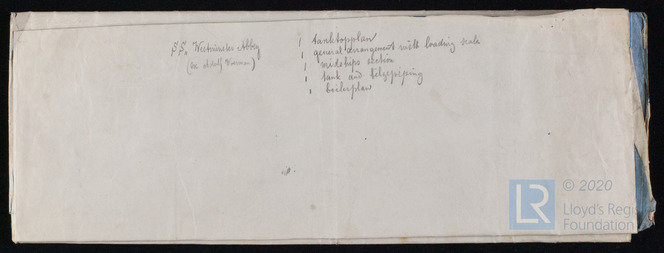 S.S. Westminster Abbey
(ex Adolf Woerman)
1 tanktopplan
1 general arrangement with loading scale
1 midships section
1 tank and bilgepiping
1 boilerplan
LR © 2020
Lloyd's Register
Foundation